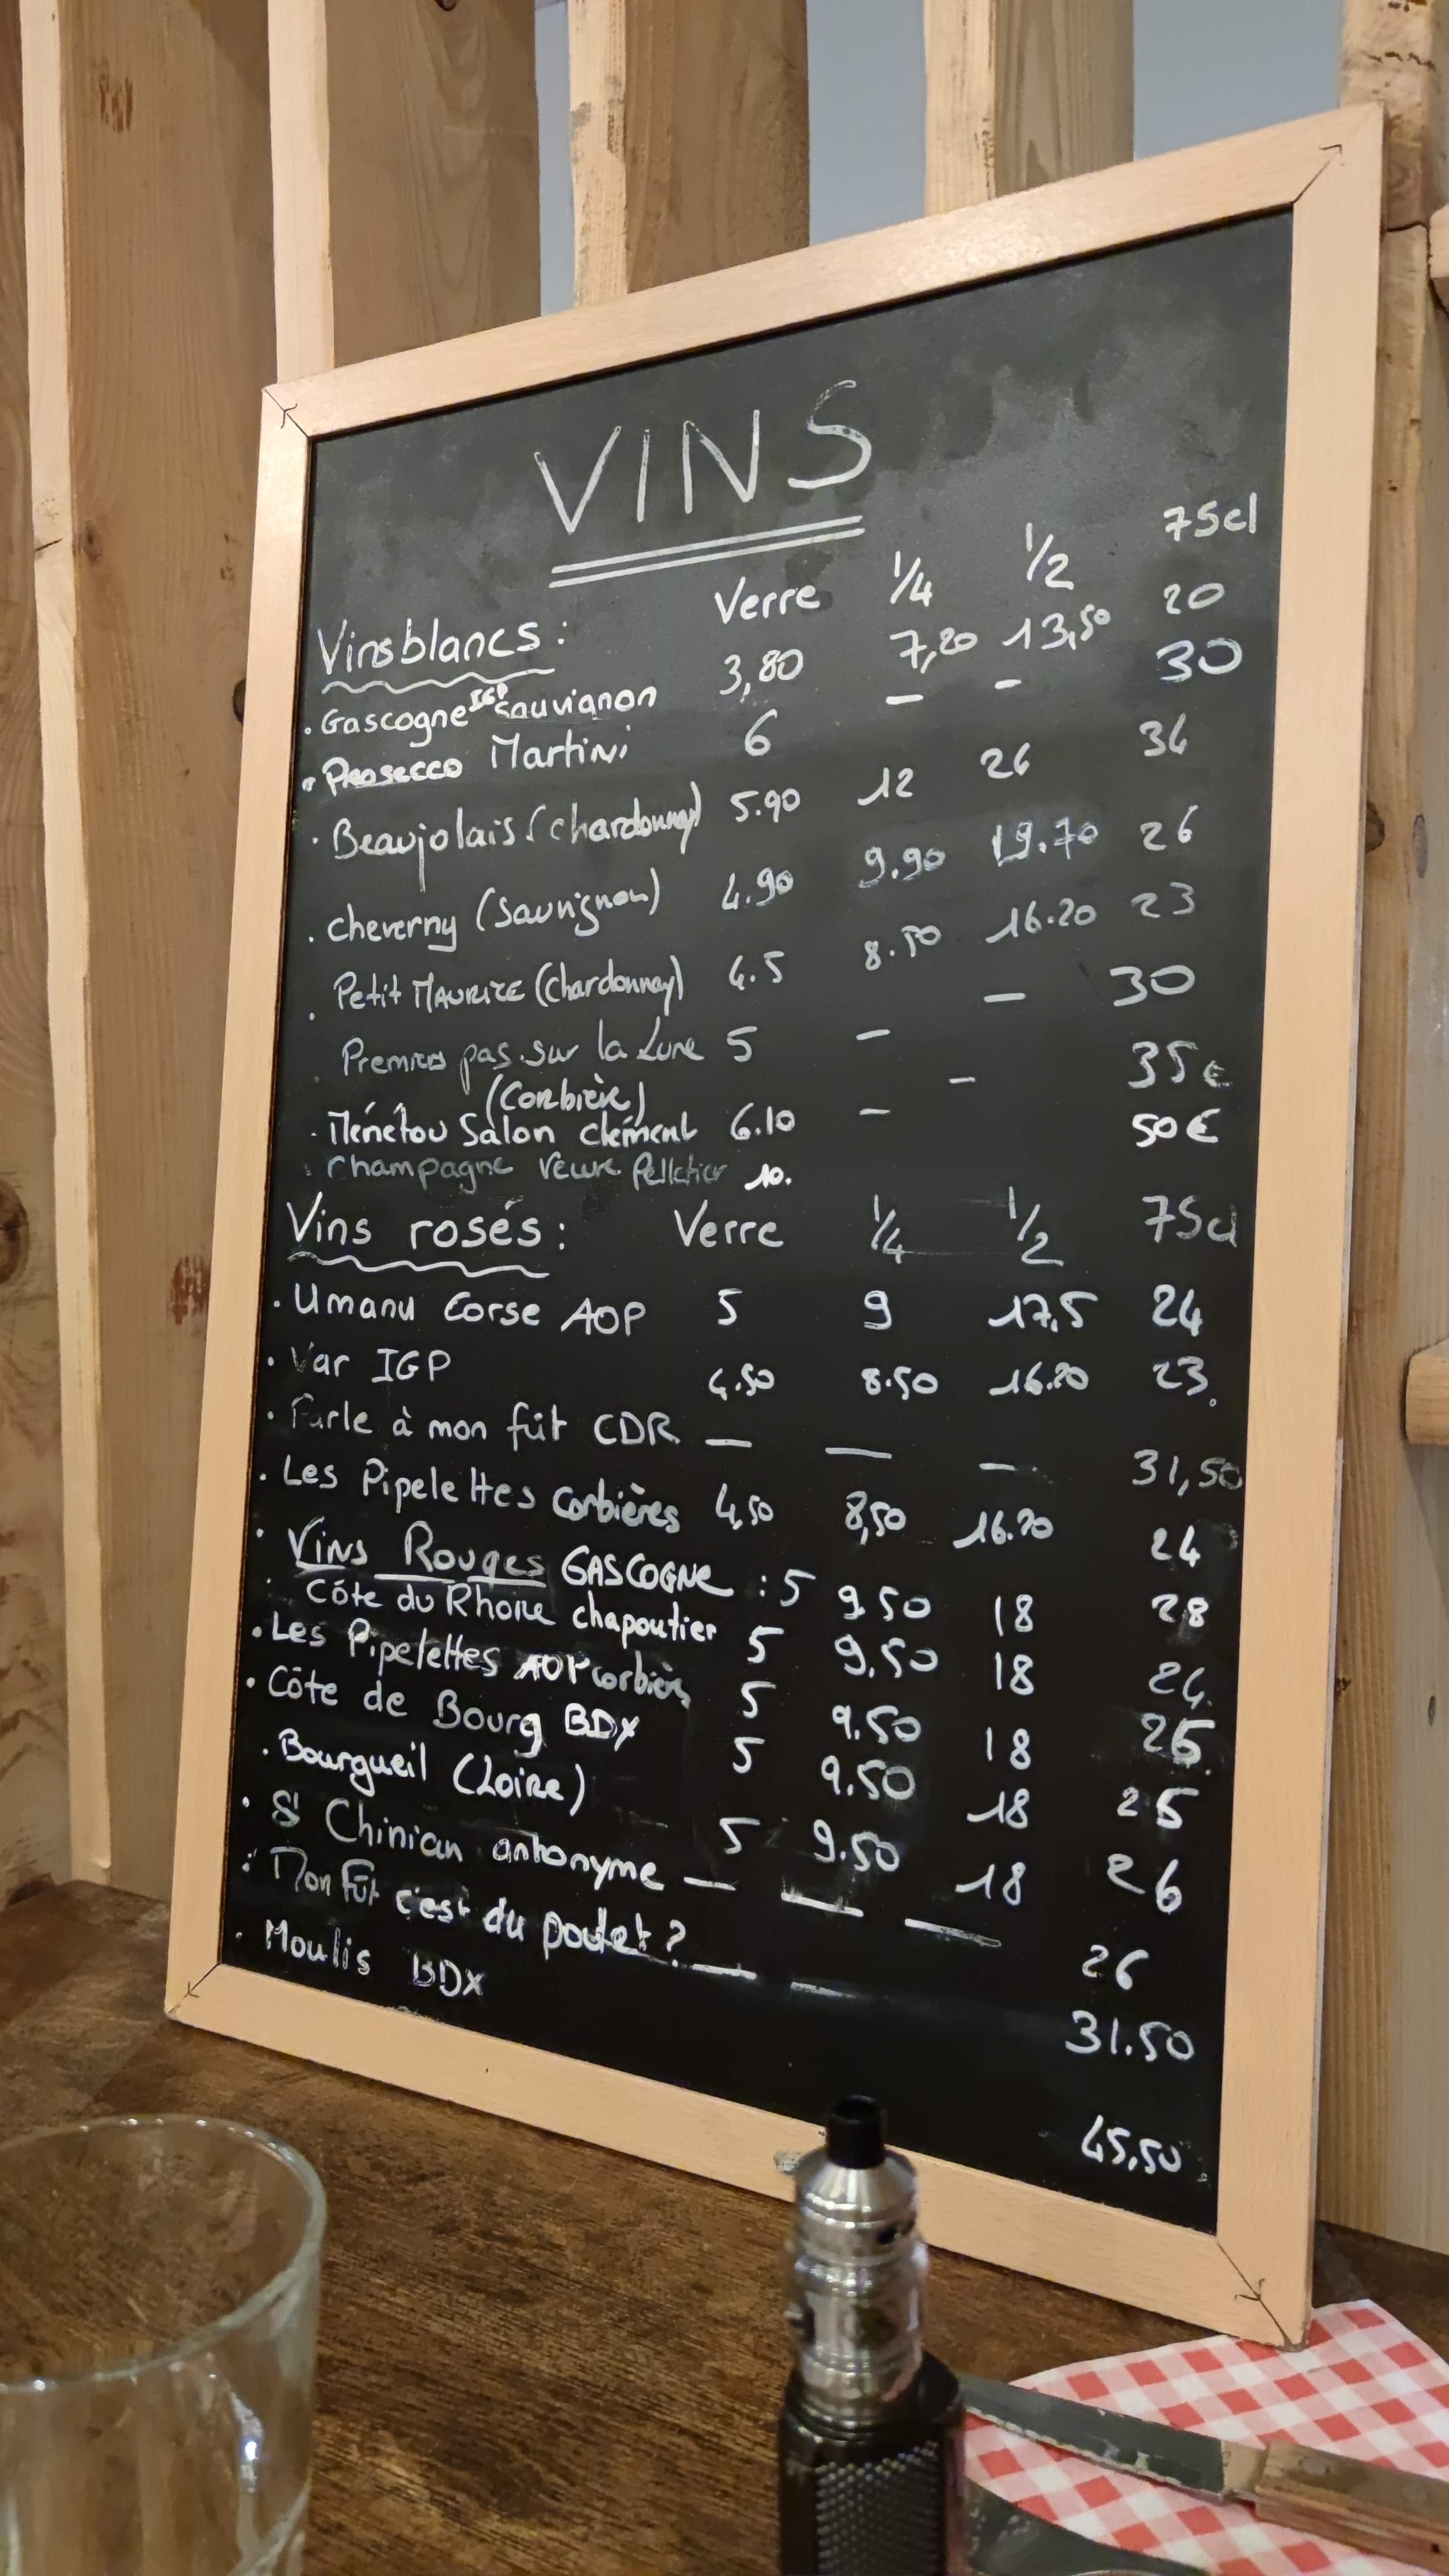 VINS
Vins blancs : Verre 1/4 1/2 75cl
. Gascogne IGP Sauvianon 3,80 7,20 13,50 20
. Prosecco Martini 6 — — 30
. Beaujolais (chardonnay) 5.90 12 26 34
. cheverny (Sauvignon) 4.90 9.90 19.70 26
. Petit MAURICE (Chardonnay) 4.5 8.50 16.20 23
. Premiers pas sur la Lune 5 — — 30
(Corbière)
. Ménétou Salon clément 6.10 — — 35€
. Champagne Veuve Pelletier 10. 50€
Vins rosés : Verre 1/4 1/2 75cl
. Umanu Corse AOP 5 9 17,5 24
. Var IGP 4.50 8.50 16.20 23
. Parle à mon fût CDR — — — 31,50
. Les Pipelettes Corbières 4,50 8,50 16.20 24
. Vins Rouges GASCOGNE : 5 9.50 18 28
. Côte du Rhone chapoutier 5 9.50 18 24
. Les Pipelettes AOP corbière 5 9.50 18 25
. Côte de Bourg BDX 5 9.50 18 25
. Bourgueil (Loire) 5 9.50 18 26
. St Chinian antonyme — — — 26
. Mon Fût c'est du poulet ? — — 31.50
. Moulis BDX 45,50